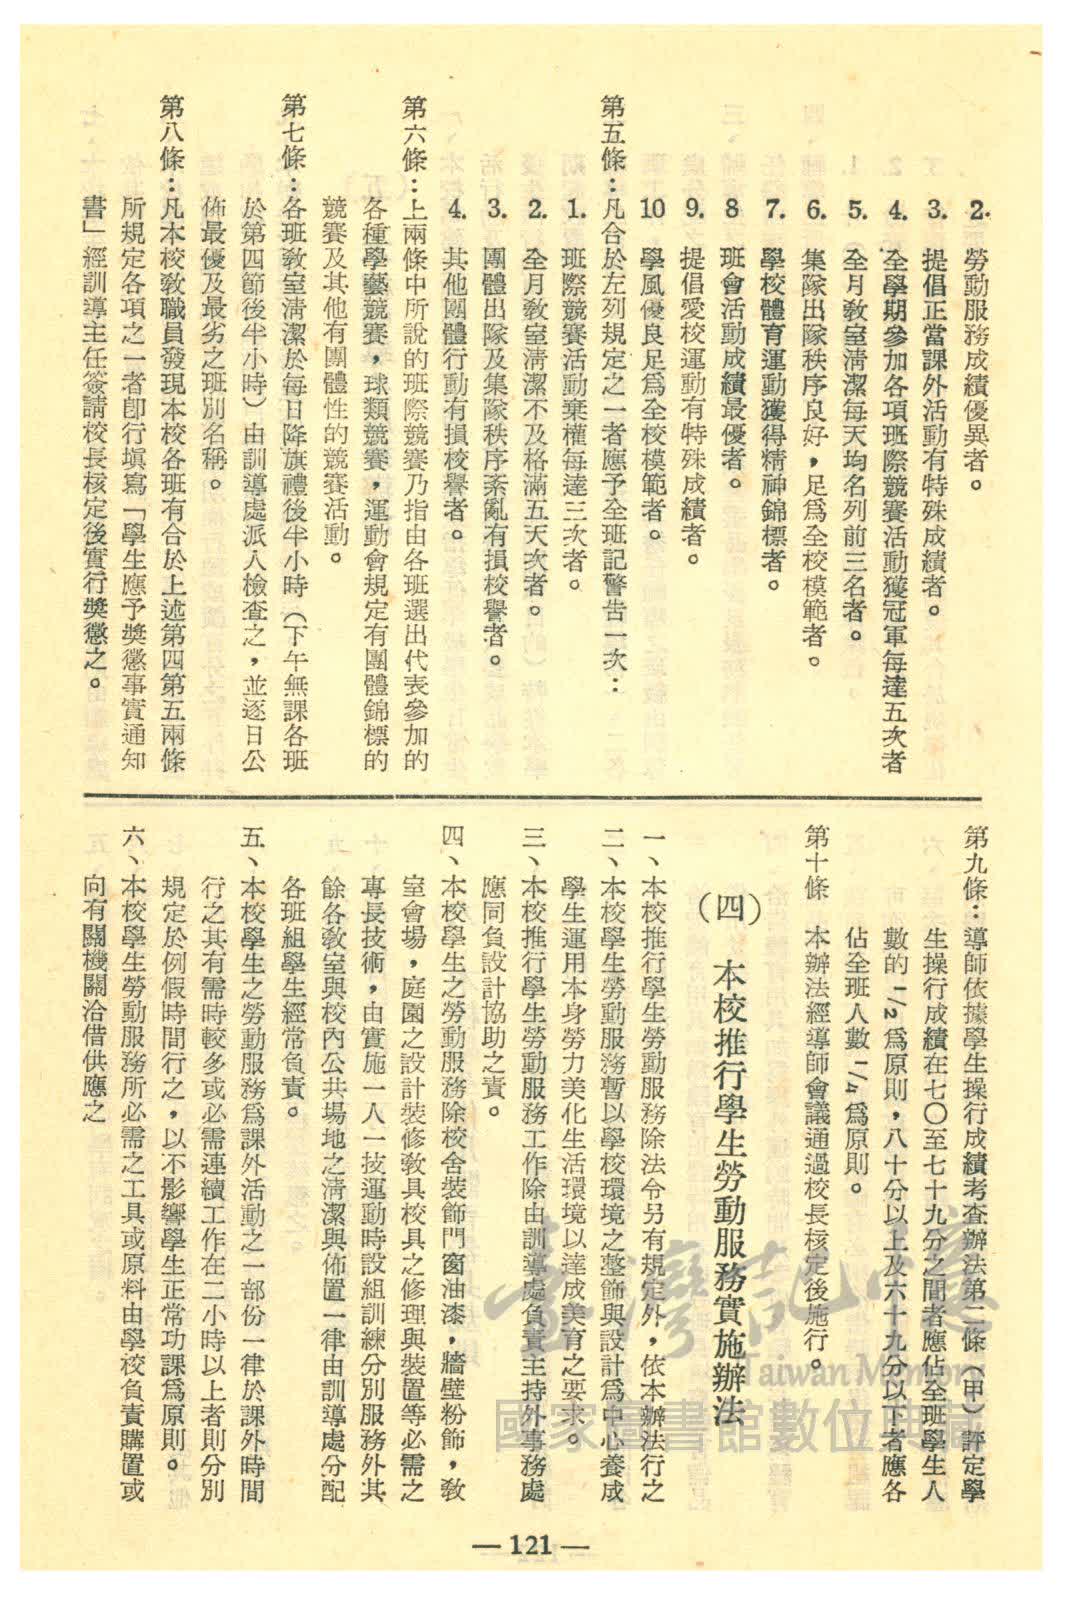 2. 勞動服務成績優異者。
3. 提倡正當課外活動有特殊成績者。
4. 全學期參加各項班際競賽活動獲冠軍每達五次者
5. 全月敎室淸潔每天均名列前三名者。
6. 集隊出隊秩序良好，足爲全校模範者。
7. 學校體育運動獲得精神錦標者。
8 班會活動成績最優者。
9. 提倡愛校運動有特殊成績者。
10 學風優良足爲全校模範者。
第五條：凡合於左列規定之一者應予全班記警告一次：
1. 班際競賽活動棄權每達三次者。
2. 全月敎室淸潔不及格滿五天次者。
3. 團體出隊及集隊秩序紊亂有損校譽者。
4. 其他團體行動有損校譽者。
第六條：上兩條中所說的班際競賽乃指由各班選出代表參加的
各種學藝競賽，球類競賽，運動會規定有團體錦標的
競賽及其他有團體性的競賽活動。
第七條：各班敎室淸潔於每日降旗禮後半小時（下午無課各班
於第四節後半小時）由訓導處派人檢查之，並逐日公
佈最優及最劣之班別名稱。
第八條：凡本校敎職員發現本校各班有合於上述第四第五兩條
所規定各項之一者卽行塡寫「學生應予獎懲事實通知
書」經訓導主任簽請校長核定後實行獎懲之。
第九條：導師依據學生操行成績考查辦法第二條（甲）評定學
生操行成績在七〇至七十九分之間者應佔全班學生人
數的1/2爲原則，八十分以上及六十九分以下者應各
佔全班人數1/4爲原則。
第十條　本辦法經導師會議通過校長核定後施行。
（四）　本校推行學生勞動服務實施辦法
一、本校推行學生勞動服務除法令另有規定外，依本辦法行之
二、本校學生勞動服務暫以學校環境之整飾與設計爲中心養成
學生運用本身勞力美化生活環境以達成美育之要求。
三、本校推行學生勞動服務工作除由訓導處負責主持外事務處
應同負設計協助之責。
四、本校學生之勞動服務除校舍裝飾門窗油漆，牆壁粉飾，敎
室會場，庭園之設計裝修敎具校具之修理與裝置等必需之
專長技術，由實施一人一技運動時設組訓練分別服務外其
餘各敎室與校內公共場地之淸潔與佈置一律由訓導處分配
各班組學生經常負責。
五、本校學生之勞動服務爲課外活動之一部份一律於課外時間
行之其有需時較多或必需連續工作在二小時以上者則分別
規定於例假時間行之，以不影響學生正常功課爲原則。
六、本校學生勞動服務所必需之工具或原料由學校負責購置或
向有關機關洽借供應之
— 121 —
臺灣記憶
Taiwan Memory
國家圖書館數位典藏